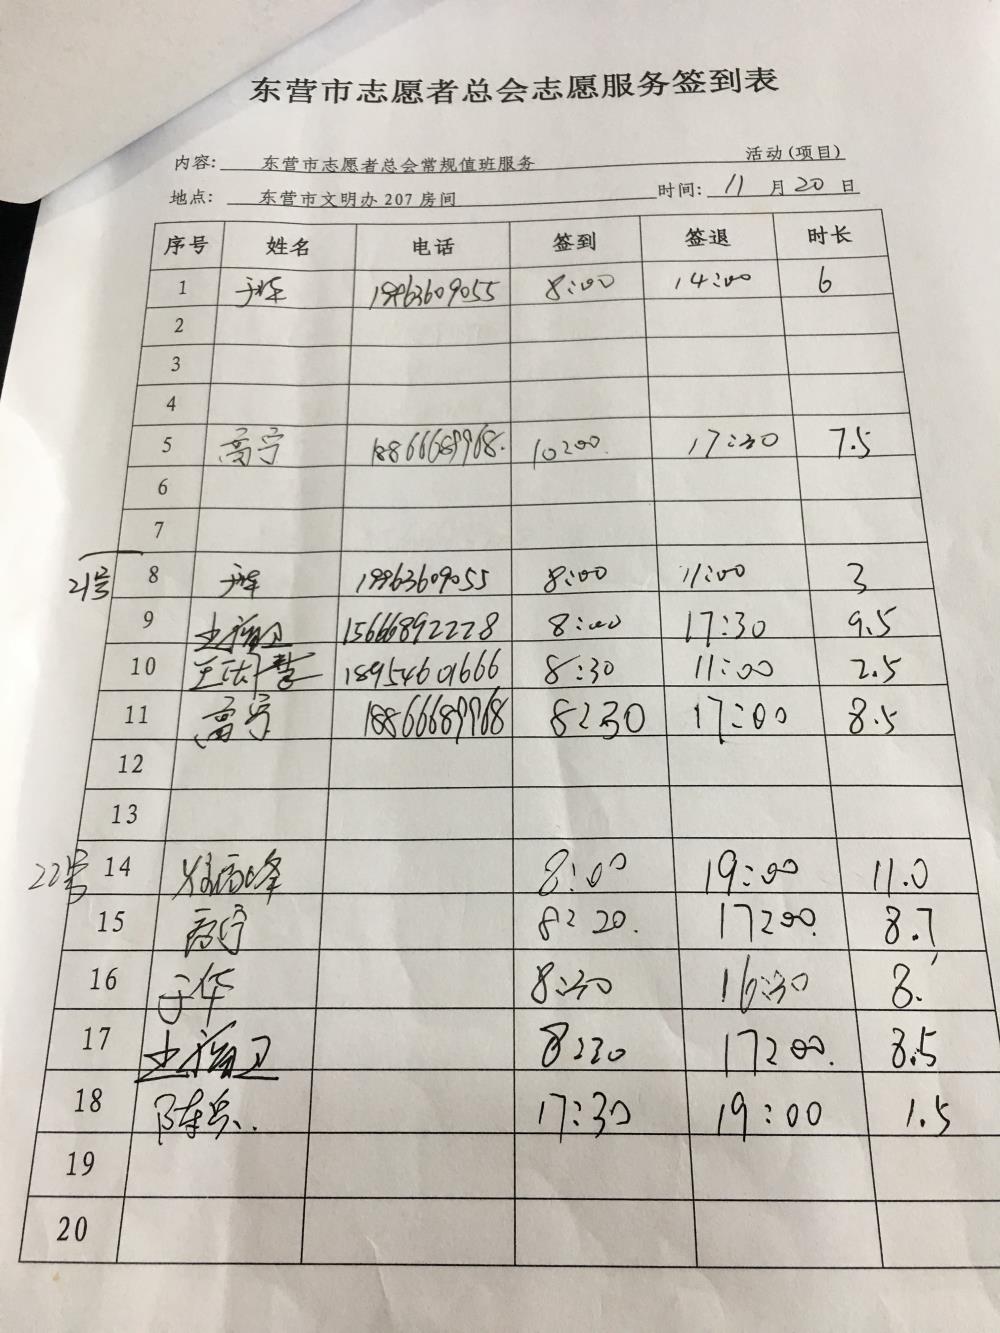 东营市志愿者总会志愿服务签到表
内容: 东营市志愿者总会常规值班服务 活动(项目)
地点: 东营市文明办207房间 时间: 11月20日
序号 姓名 电话 签到 签退 时长
1 18963609055 8:00 14:00 6
2
3
4
5 高宁 18866689968. 10:00 17:30 7.5
6
7
21号 8 18963609055 8:00 11:00 3
9 15666892228 8:00 17:30 9.5
10 18954601666 8:30 11:00 2.5
11 高宁 18866689968 8:30 17:00 8.5
12
13
22号 14 8:00 19:00 11.0
15 高宁 8:20. 17:00. 8.7
16 于华 8:30 16:30 8.
17 8:30 17:00. 8.5
18 陈兵.. 17:30 19:00 1.5
19
20